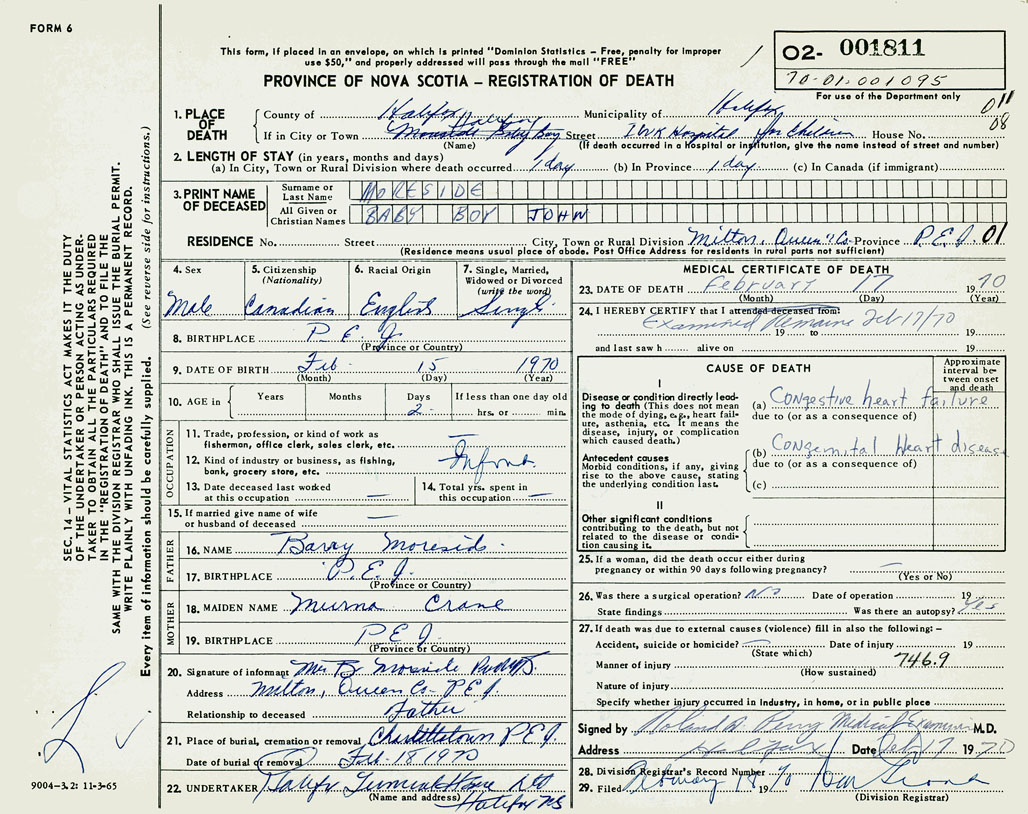 FORM 6
This form, if placed in an envelope, on which is printed "Dominion Statistics – Free, penalty for improper
use $50," and properly addressed will pass through the mail "FREE"
PROVINCE OF NOVA SCOTIA – REGISTRATION OF DEATH
O2- 001811
70-01-001095
For use of the Department only
011
08
1. PLACE OF DEATH
County of Halifax Municipality of Halifax
If in City or Town Halifax Street IWK Hospital for Children House No.
(Name) (If death occurred in a Hospital or institution, give the name instead of street and number)
2. LENGTH OF STAY (in years, months and days)
(a) In City, Town or Rural Division where death occurred 1 day (b) In Province 1 day (c) In Canada (if immigrant)
3. PRINT NAME OF DECEASED
Surname or Last Name MORESIDE
All Given or Christian Names BABY BOY JOHN
RESIDENCE No. Street City, Town or Rural Division Milton, Queen's Co Province P.E.I. 01
(Residence means usual place of abode. Post Office Address for residents in rural parts not sufficient)
4. Sex
Male
5. Citizenship
(Nationality)
Canadian
6. Racial Origin
English
7. Single, Married,
Widowed or Divorced
(write the word)
Single
8. BIRTHPLACE P.E.I.
(Province or Country)
9. DATE OF BIRTH Feb 15 1970
(Month) (Day) (Year)
10. AGE in Years Months Days If less than one day old
2 hrs. or min.
OCCUPATION
11. Trade, profession, or kind of work as
fisherman, office clerk, sales clerk, etc. —
12. Kind of industry or business, as fishing,
bank, grocery store, etc. Infant
13. Date deceased last worked
at this occupation —
14. Total yrs. spent in
this occupation —
15. If married give name of wife
or husband of deceased —
FATHER
16. NAME Barry Moreside
17. BIRTHPLACE P.E.I.
(Province or Country)
MOTHER
18. MAIDEN NAME Murna Crane
19. BIRTHPLACE P.E.I.
(Province or Country)
20. Signature of informant Mr B Moreside
Address Milton, Queen Co P.E.I.
Relationship to deceased Father
21. Place of burial, cremation or removal Charlottetown P.E.I.
Date of burial or removal Feb-18 1970
22. UNDERTAKER Halifax Funeral Home Ltd
(Name and address) Halifax NS
MEDICAL CERTIFICATE OF DEATH
23. DATE OF DEATH February 17 1970
(Month) (Day) (Year)
24. I HEREBY CERTIFY that I attended deceased from:
Examined Remains Feb 17/70
19 to 19
and last saw h alive on 19
CAUSE OF DEATH
Approximate interval between onset and death
I
Disease or condition directly leading
to death (This does not mean
the mode of dying, e.g., heart failure,
asthenia, etc. It means the
disease, injury, or complication
which caused death.)
(a) Congestive heart failure
due to (or as a consequence of)
Antecedent causes
Morbid conditions, if any, giving
rise to the above cause, stating
the underlying condition last.
(b) Congenital heart disease
due to (or as a consequence of)
(c)
II
Other significant conditions
contributing to the death, but not
related to the disease or condition
causing it.
25. If a woman, did the death occur either during
pregnancy or within 90 days following pregnancy? —
(Yes or No)
26. Was there a surgical operation? No Date of operation 19
State findings Was there an autopsy? Yes
27. If death was due to external causes (violence) fill in also the following: –
Accident, suicide or homicide? Date of injury 19
(State which)
Manner of injury 746.9
(How sustained)
Nature of injury
Specify whether injury occurred in Industry, in home, or in public place
Signed by Roland Perry Medical Examiner M.D.
Address Halifax Date Feb 17 1970
28. Division Registrar's Record Number
29. Filed February 18 1970
(Division Registrar)
SEC. 14 – VITAL STATISTICS ACT MAKES IT THE DUTY
OF THE UNDERTAKER OR PERSON ACTING AS UNDER-
TAKER TO OBTAIN ALL THE PARTICULARS REQUIRED
IN THE "REGISTRATION OF DEATH" AND TO FILE THE
SAME WITH THE DIVISION REGISTRAR WHO SHALL ISSUE THE BURIAL PERMIT.
WRITE PLAINLY WITH UNFADING INK. THIS IS A PERMANENT RECORD.
Every item of information should be carefully supplied. (See reverse side for instructions.)
9004-3.2: 11-3-65